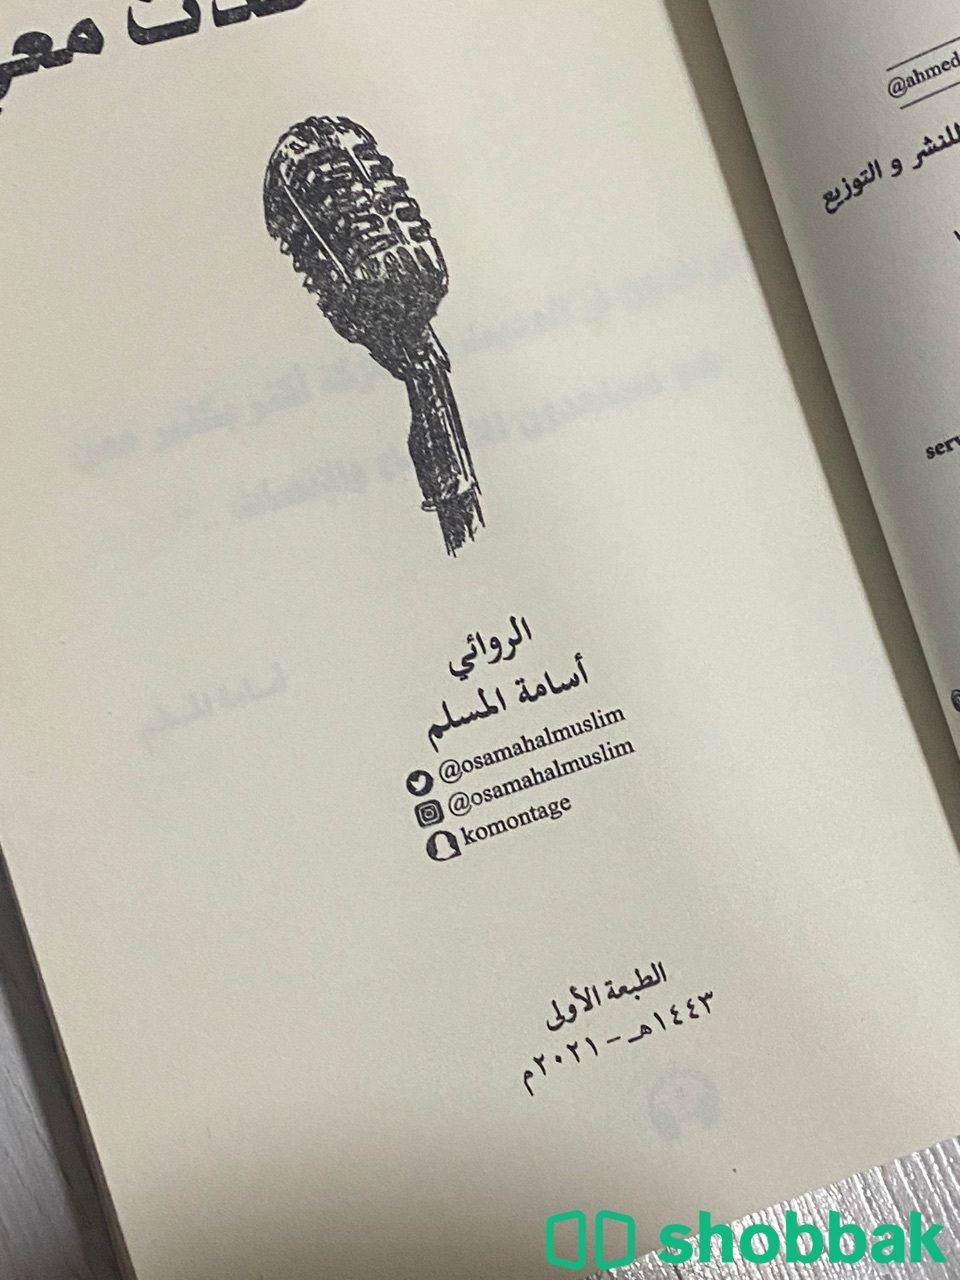 الروائي
أسامة المسلم
@osamahalmuslim
@osamahalmuslim
komontage
الطبعة الأولى
١٤٤٣هـ - ٢٠٢١م
@ahmed
للنشر و التوزيع
serv
shobbak